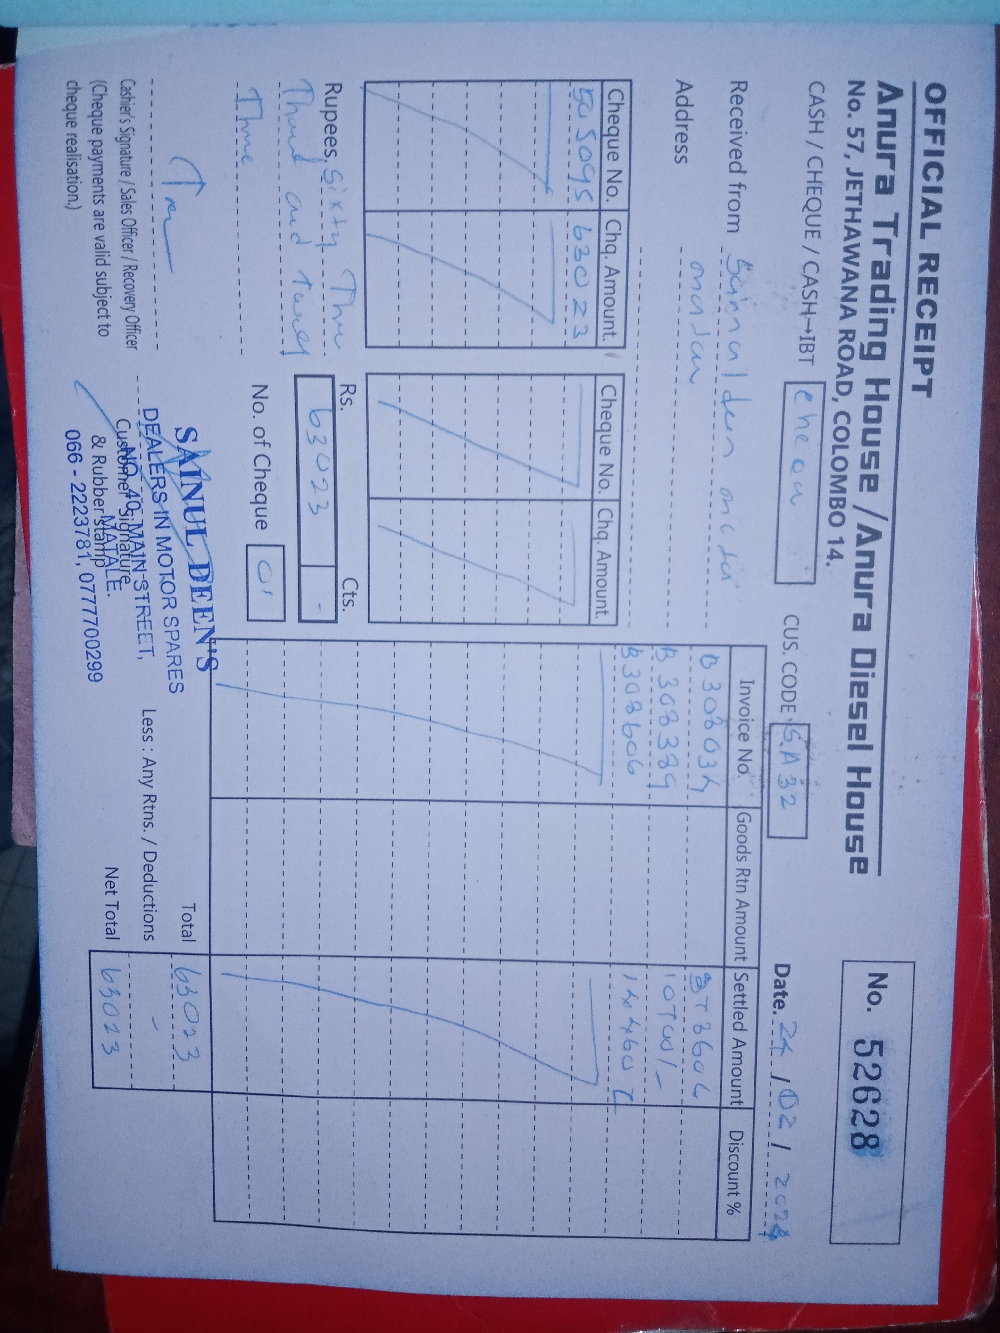 OFFICIAL RECEIPT
Anura Trading House / Anura Diesel House
No. 57, JETHAWANA ROAD, COLOMBO 14.
No. 52628
CASH / CHEQUE / CASH→IBT
CUS. CODE S.A 32
Date. 24 / 02 /
Received from
Address
Cheque No. Chq. Amount.
63023
Cheque No. Chq. Amount.
Invoice No. Goods Rtn Amount Settled Amount Discount %
B 308389
B308606
Rupees, Sixty Three
Thousand and Twenty
Three
Rs. Cts.
63023 -
No. of Cheque 01
Total 63023
Less : Any Rtns. / Deductions -
Net Total 63023
Cashier's Signature / Sales Officer / Recovery Officer
(Cheque payments are valid subject to
cheque realisation.)
Customer Signature
& Rubber Stamp
SAINUL DEEN'S
DEALERS IN MOTOR SPARES
NO. 40, MAIN STREET,
MATALE.
066 - 2223781, 0777700299